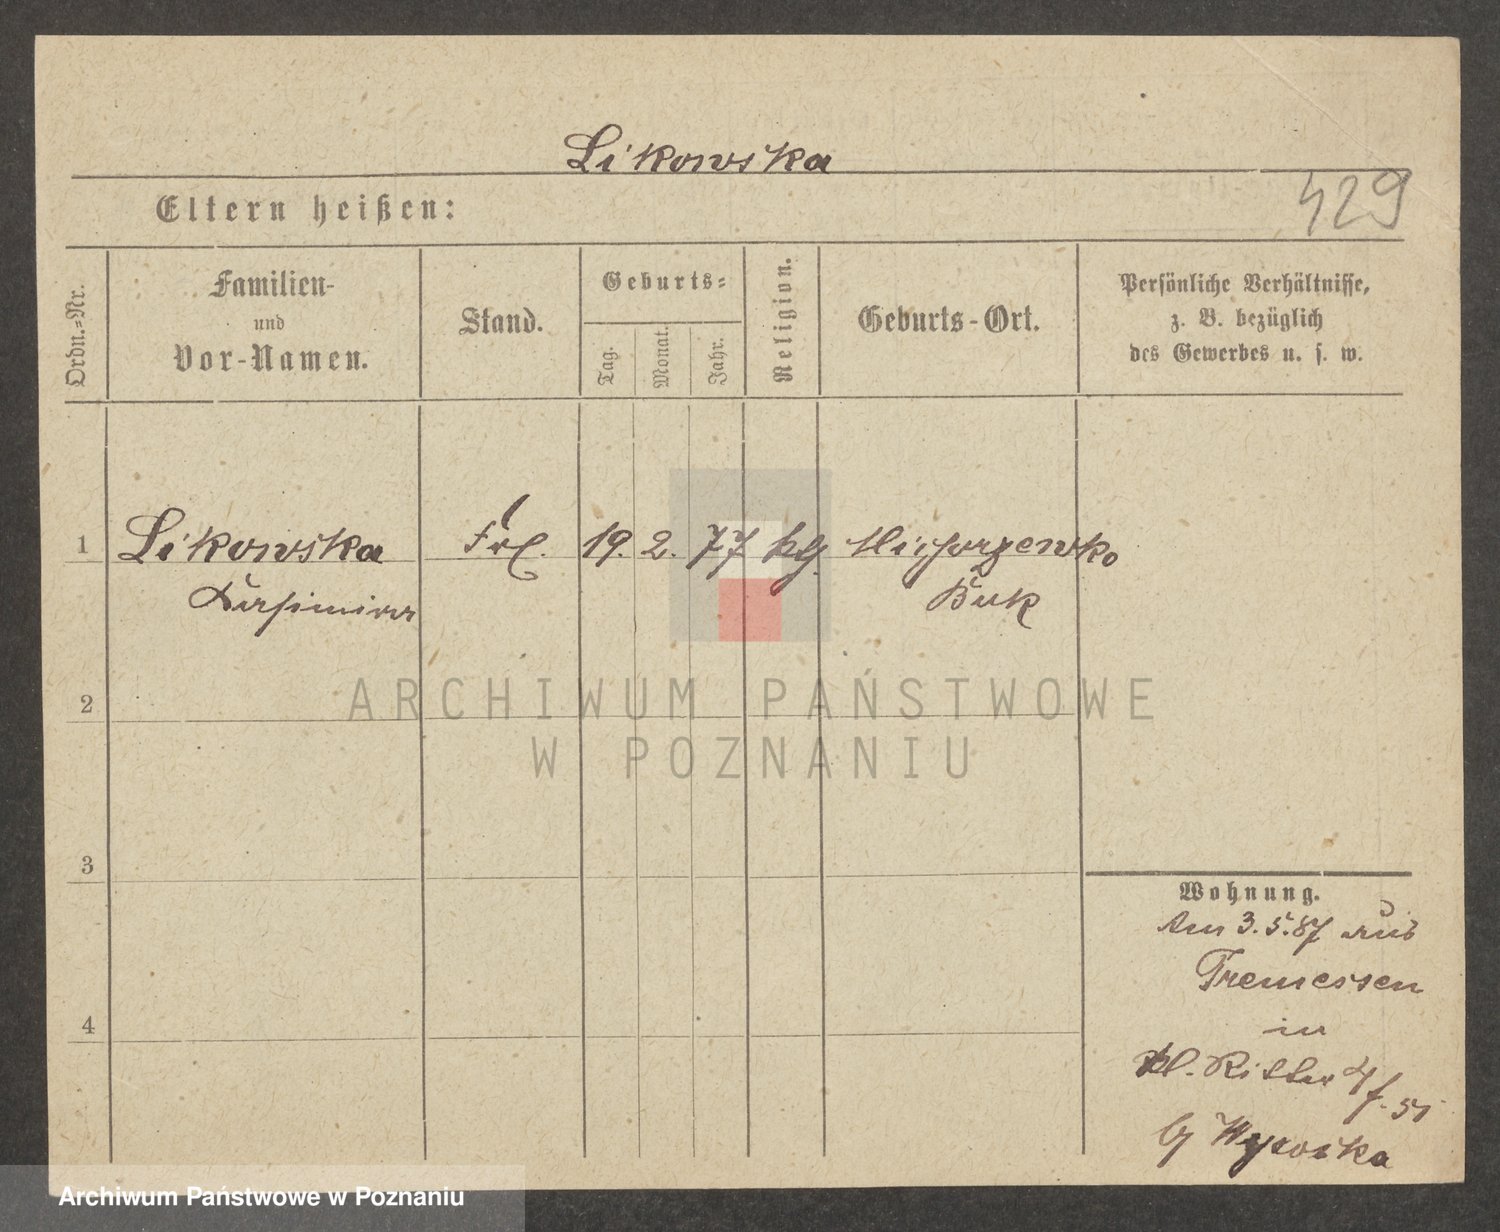 Likowska
Eltern heißen:
429
Ordn.=Nr.
Familien-
und
Vor-Namen.
Stand.
Geburts=
Tag.
Monat.
Jahr.
Religion.
Geburts-Ort.
Persönliche Verhältnisse,
z. B. bezüglich
des Gewerbes u. s. w.
1 Likowska Frl. 19. 2. 77
Kasimira Buk
ARCHIWUM PAŃSTWOWE
W POZNANIU
2
3
4
Wohnung.
Am 3.5.87 aus
Tremessen
in
kl. Ritter
Wysocka
Archiwum Państwowe w Poznaniu